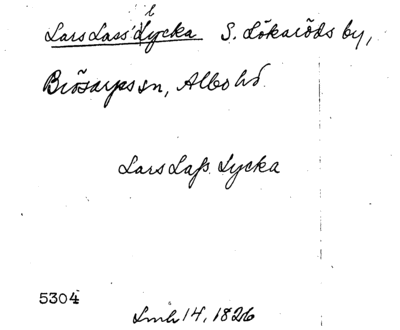 Lars Lass' Lycka S. Lökaröds by,
Brösarps sn, Albo hd.
Lars Laſs. Lycka
5304
Lmh 14, 1826